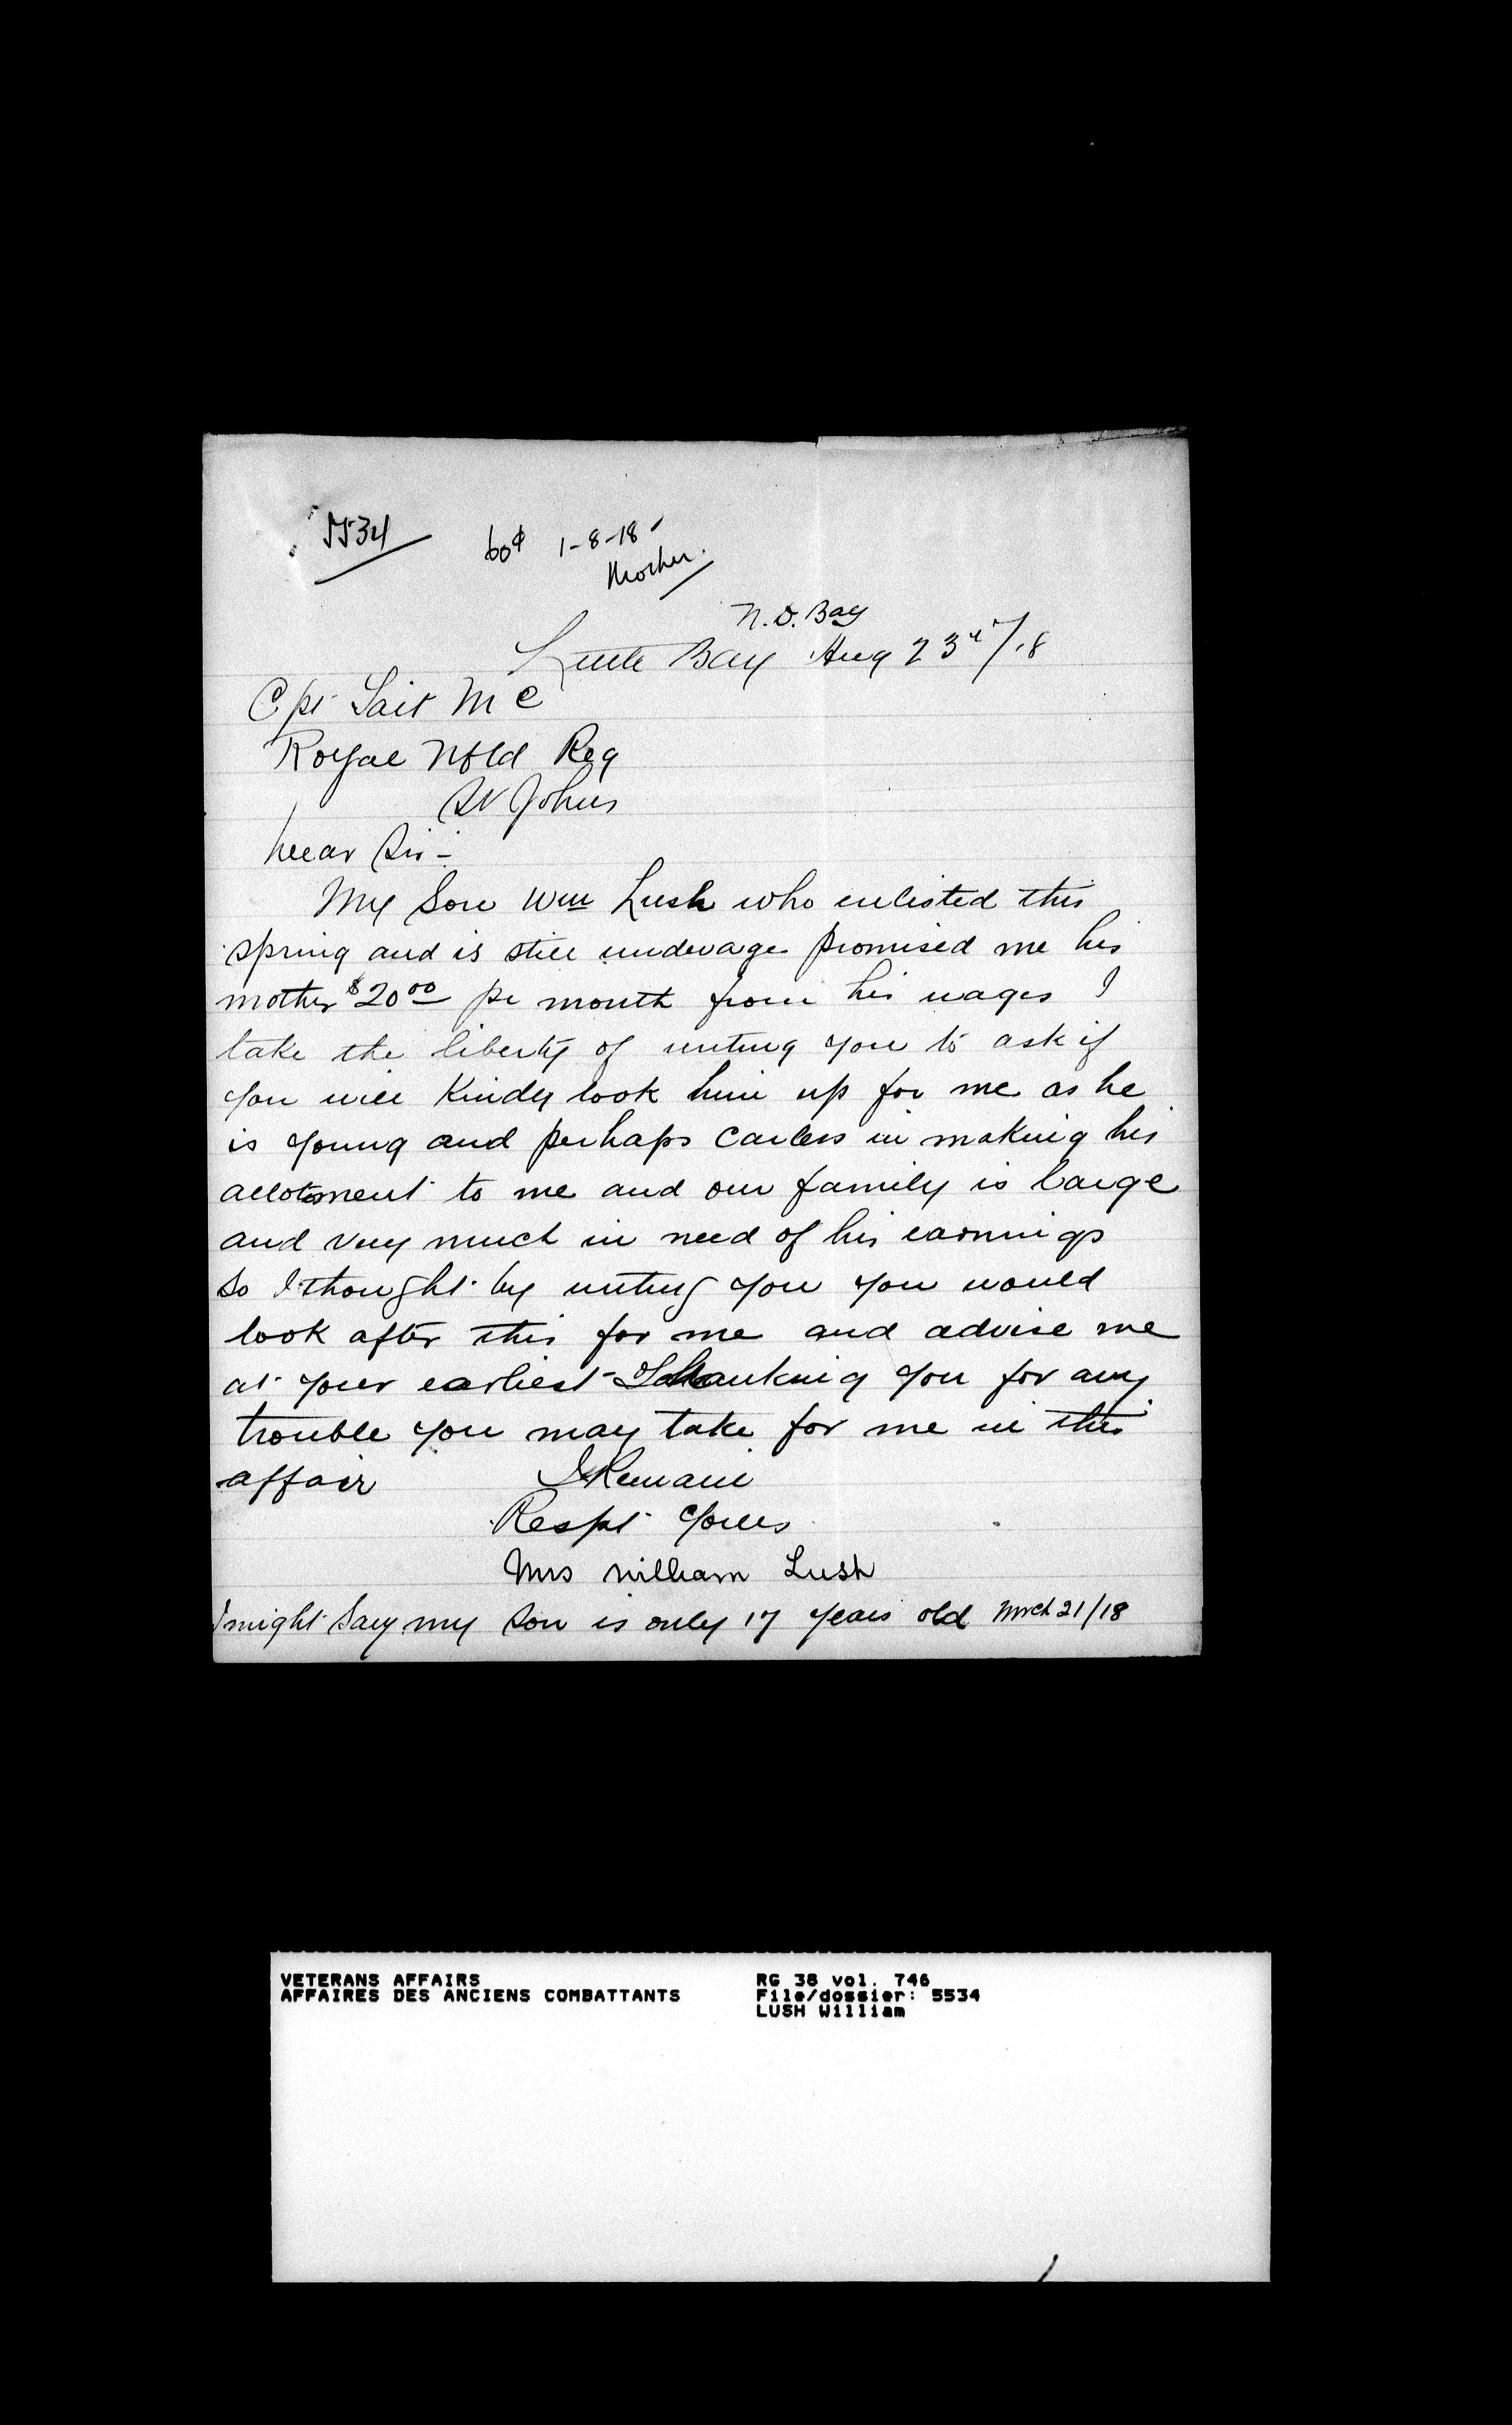 5534
60¢ 1-8-18
Mother.
N.D. Bay
Little Bay Aug 23rd/18
Cpt Tait M C
Royal Nfld Reg
St Johns
Dear Sir -
My Son Wm Lush who enlisted this
spring and is still underage promised me his
mother $20.00 pr month from his wages I
take the liberty of writing you to ask if
you will Kindly look him up for me as he
is young and perhaps carless in making his
allotment to me and our family is large
and very much in need of his earnings
So I thought by writing you you would
look after this for me and advise me
at your earliest Thanking you for any
trouble you may take for me in this
affair I Remain
Respt Yours
Mrs William Lush
I might Say my Son is only 17 years old Mrch 21/18
VETERANS AFFAIRS RG 38 vol. 746
AFFAIRES DES ANCIENS COMBATTANTS File/dossier: 5534
LUSH William